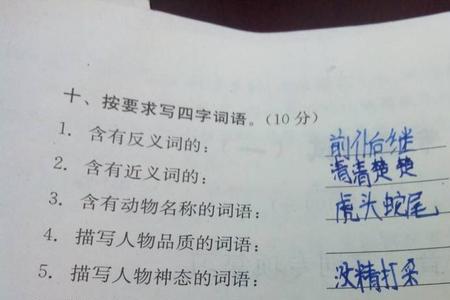 十、按要求写四字词语。(10分)
1. 含有反义词的: 前仆后继
2. 含有近义词的: 清清楚楚
3. 含有动物名称的词语: 虎头蛇尾
4. 描写人物品质的词语:
5. 描写人物神态的词语: 没精打采